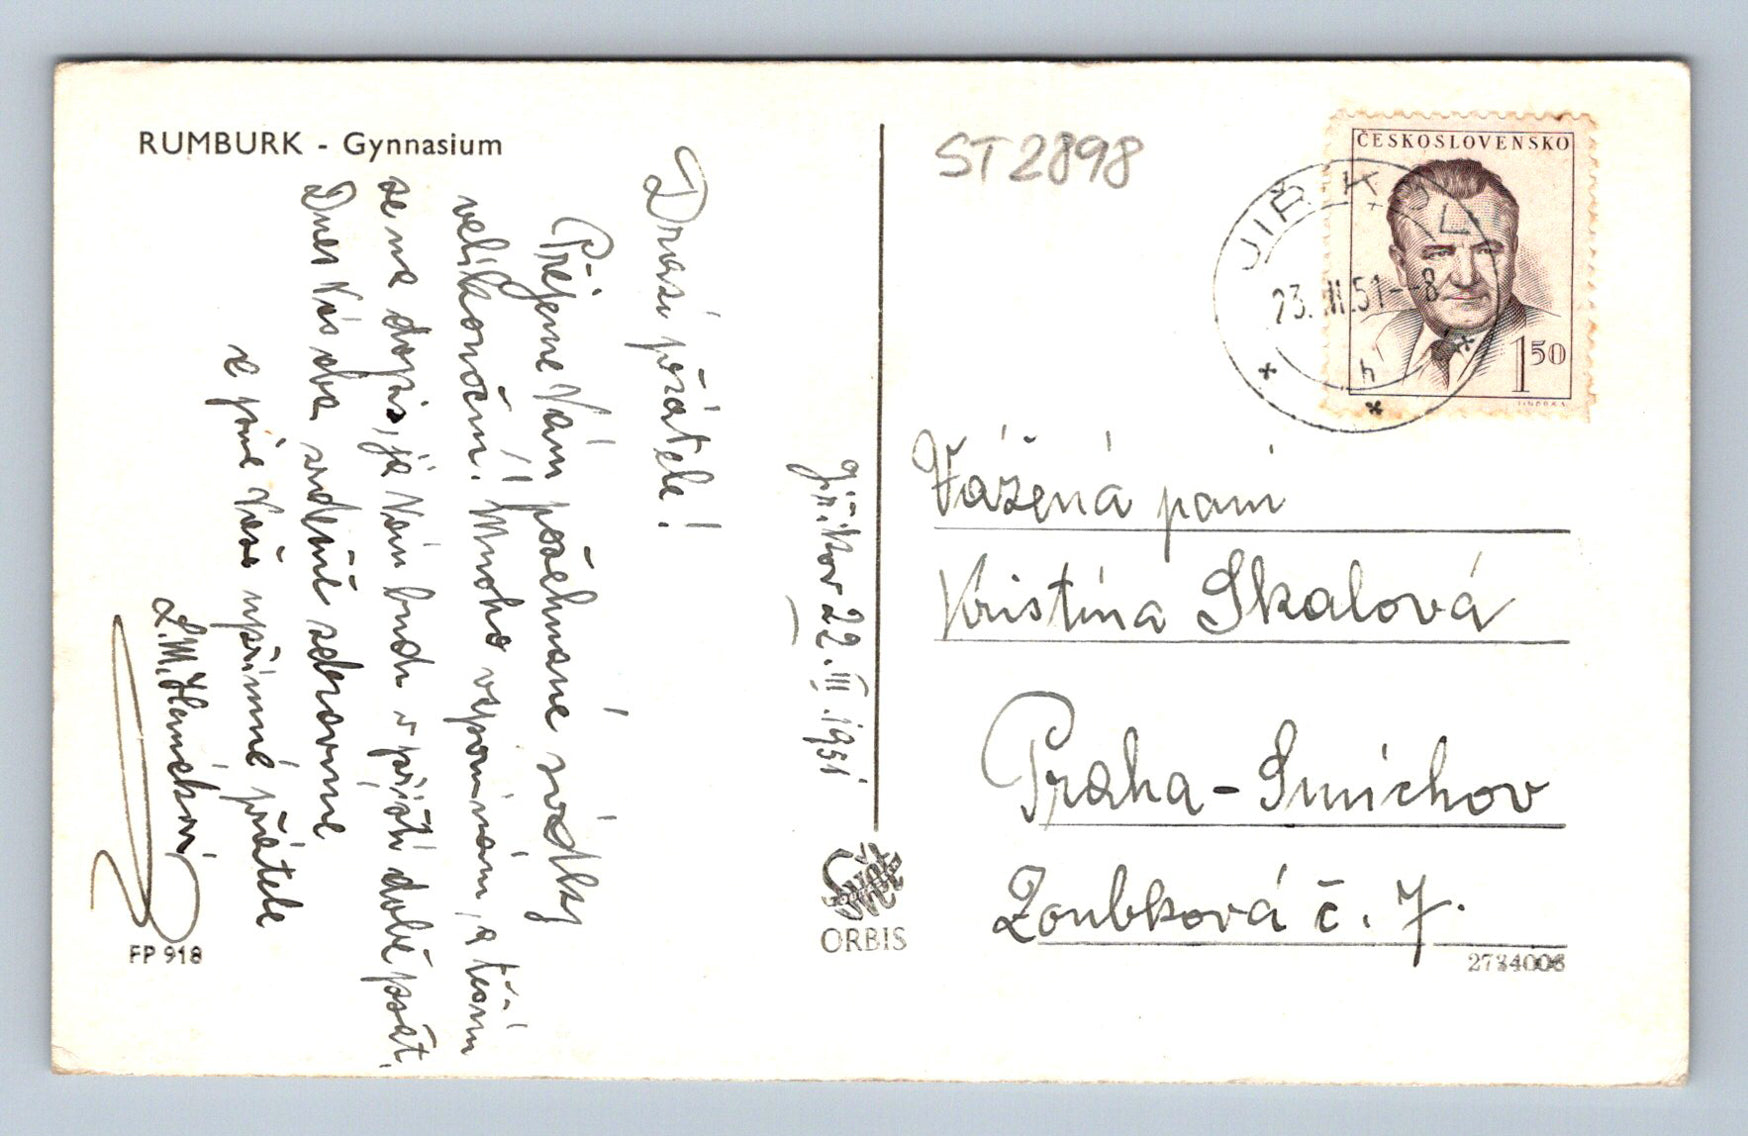 RUMBURK - Gynnasium
Drazí přátelé!
Přejeme Vám požehnané svátky
velikonoční! Mnoho vzpomínám, a těším
se na dopis, já Vám budu v příští době psát.
Dnes Vás oba srdečně zdravíme
a jsme Vaši upřímné přátelé
L.M.
FP 918
Jiříkov 22.III.1951
ORBIS
ST2898
ČESKOSLOVENSKO
1 50
JIŘÍKOV
23.III.51--8
h
Vážená paní
Kristína Skalová
Praha-Smíchov
Zoubková č. 7.
2734006